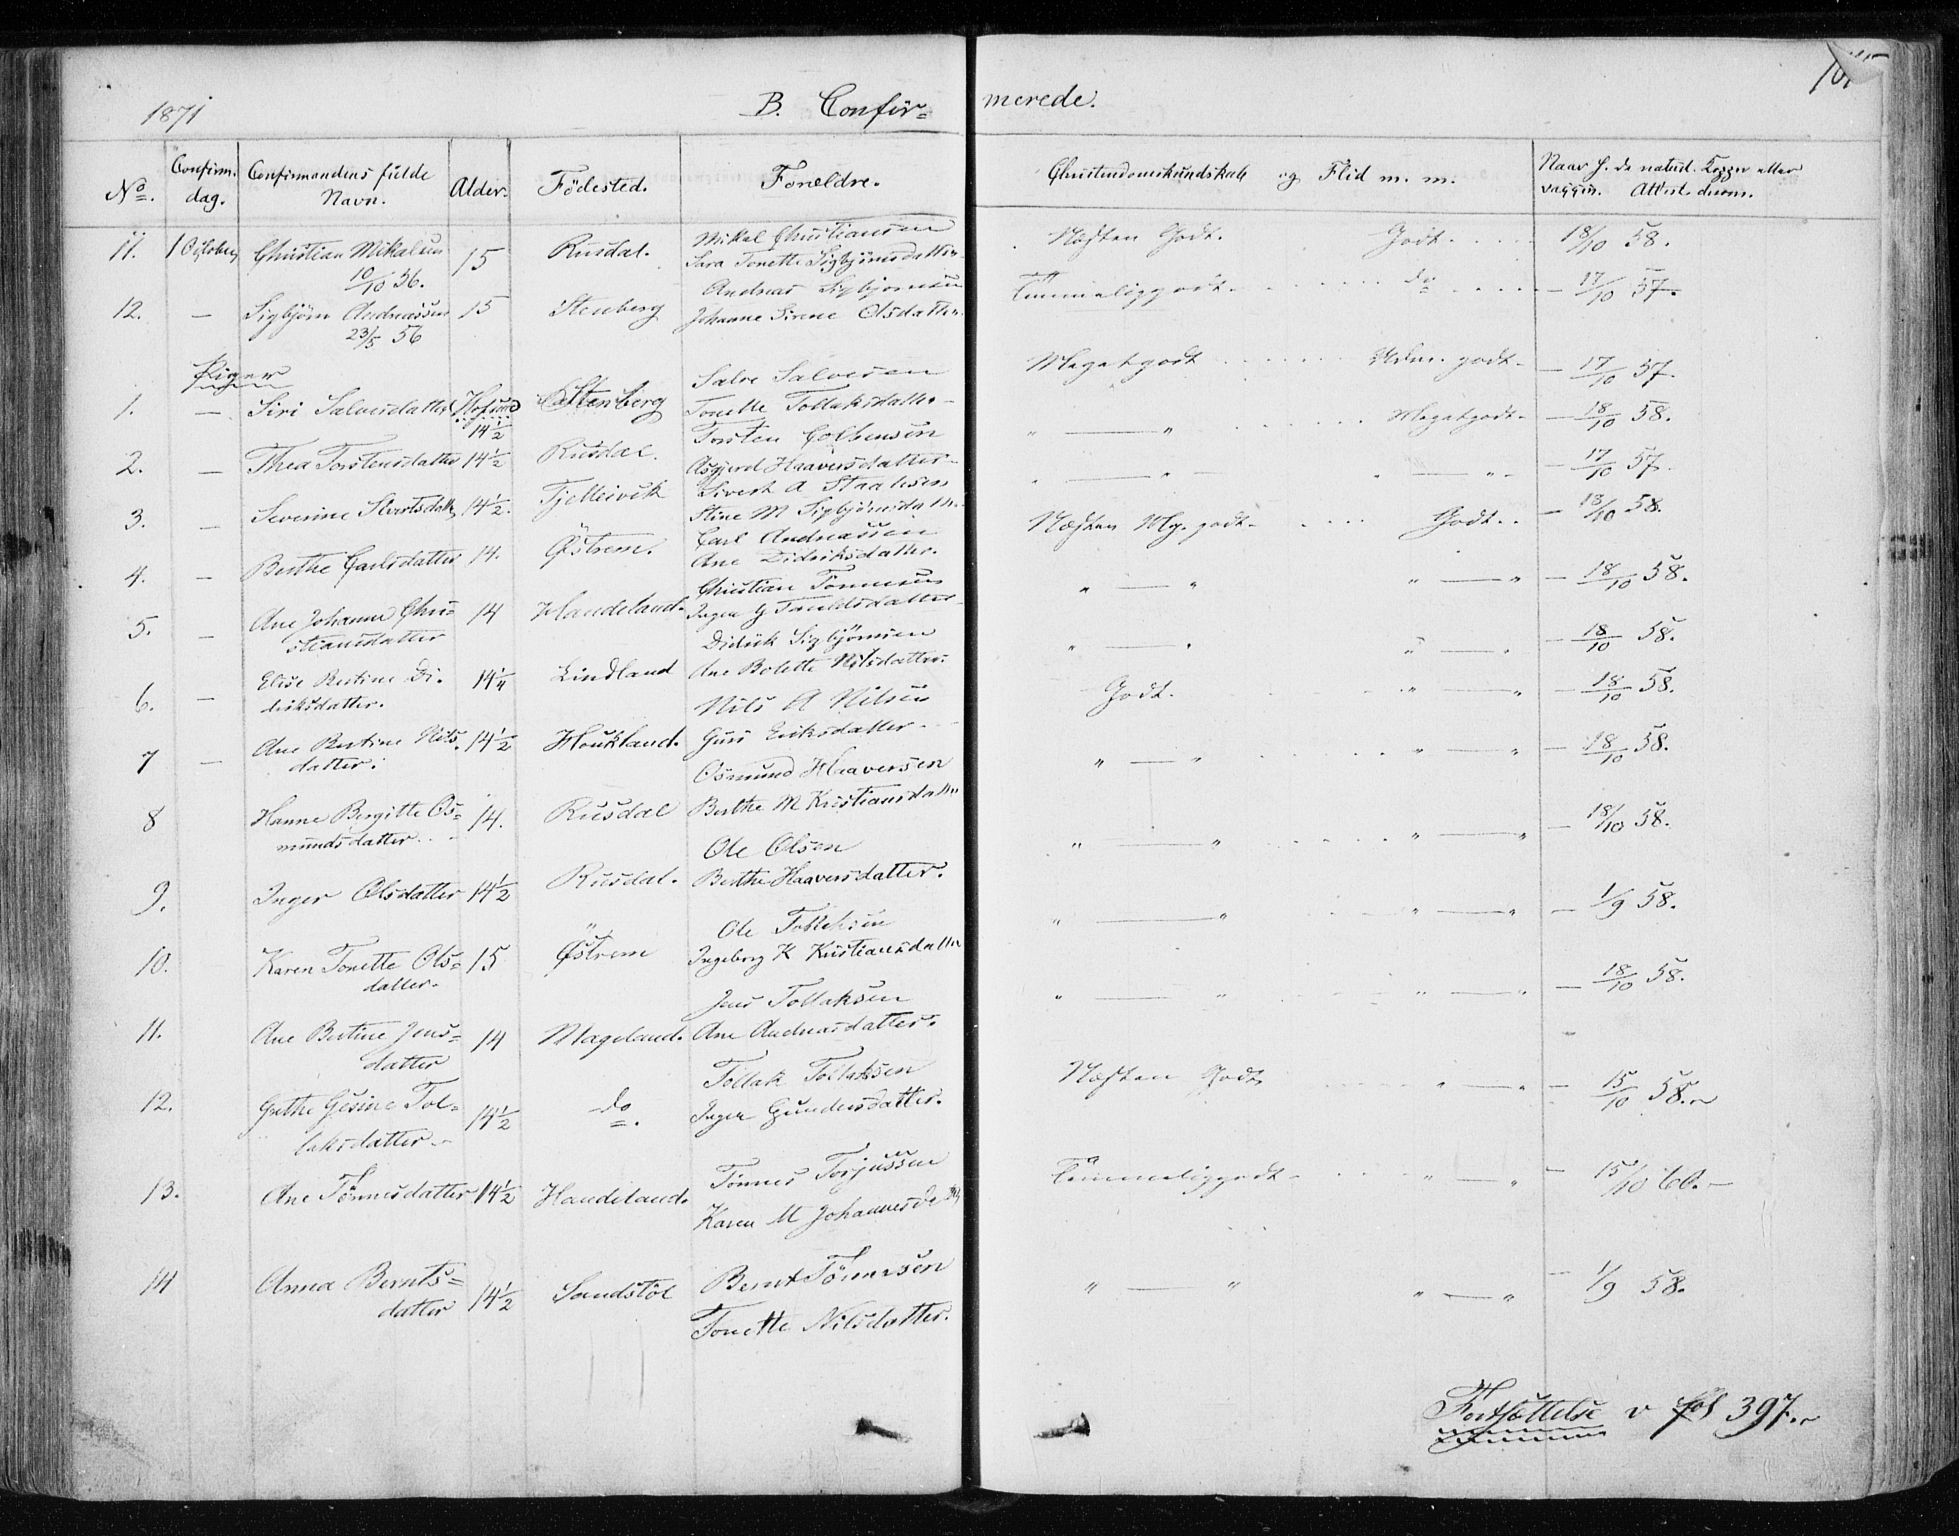 1871 B. Confir= merede.
No. Confirm. dag. Confirmandens fulde Navn. Alder. Födested. Forældre. Christendomskundskab og Flid m. m. Naar h. de naturl. Kopper eller vaccin. Attest derom.
11. 1 October Christian Mikalsen 15 Rusdal. Mikal Christiansen Næsten Godt. Godt. 18/10 58.
10/10 56. Sara Tonette Sigbjörnsdatter
12. — Sigbjörn Andreassen 15 Stenberg Andreas Sigbjörnsen Temmeliggodt. do — 17/10 57.
23/5 56 Johanne Sirene Olsdatter.
Piger
1. — Siri Salvesdatter 14½ Stenberg Salve Salvesen Megetgodt Udm. godt. — 17/10 57.
Tonette Tollaksdatter
2. — Thea Torstensdatter 14½ Rusdal. Torsten " — " Megetgodt. — 18/10 58.
Asgjerd Haaversdatter
3. — Severine Sivertsdatter 14½. Fjelleivik Sivert A " — " — " — 17/10 57.
Stine M Sigbjörnsdatter
4. — Berthe Carlsdatter 14. Östrem. Carl Andreassen Næsten Mg. godt. Godt. — 18/10 58.
Ane Didriksdatter.
5. — Ane Johanne Chri= 14 Handeland. Christian Tönnesen " — " " — " — 18/10 58.
stiansdatter Inger G
6. — Elise Bertine Di. 14¼ Lindland Didrik Sigbjörnsen " — " " — " — 18/10 58.
driksdatter. Ane Bolette Nilsdatter.
7 — Ane Bertine Nils. 14½ Houkland. Nils A Nilsen Godt. " — " — 18/10 58.
datter. Guri Eriksdatter
8 Hanne Bergitte Os= 14. Rusdal Osmund Haaversen " — " " — " — 18/10 58.
mundsdatter. Berthe M Kristiansdatter
9. Inger Olsdatter 14½ Rusdal. Ole Olsen " — " " — " — 18/10 58.
Berthe Haaversdatter.
10. Karen Tonette Ols= 15 Östrem Ole " — " " — " — 1/9 58.
datter. Ingeborg K Kristiansdatter
11. Ane Bertine Jens= 14 Mageland. Jens Tollaksen " — " " — " — 18/10 58.
datter Ane Andreasdatter.
12. Gesine Tol= 14½ do Tollak Tollaksen Næsten Godt " — " — 15/10 58.
laksdatter. Inger Gundersdatter.
13. Ane Tönnesdatter 14½ Handeland. Tönnes Torjussen Temmeliggodt. " — " — 15/10 60.
Karen M Johannesdatter
14 Anna Bernts= 14½ Sandstöl Bernt Tönnesen " — " " — " — 1/9 58.
datter Tonette Nilsdatter.
Fortsættelse v fol 397.